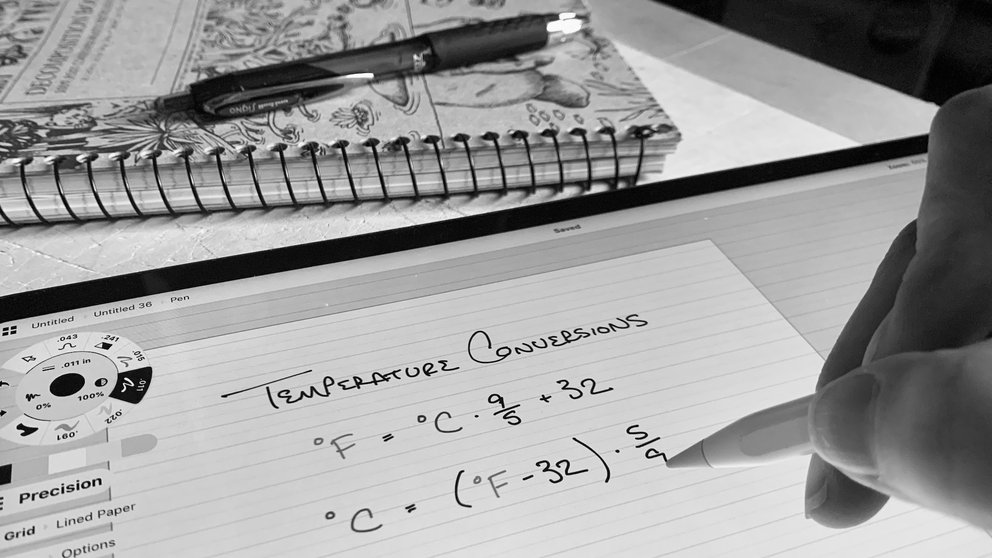 DECOMPOSITION BO
uni-ball SIGNO
Saved
Untitled Untitled 36 Pen
.043
.241
.015
.011 in
.011
0% 100%
.022
.091
Precision
Grid Lined Paper
Options
TEMPERATURE CONVERSIONS
°F = °C · 9/5 + 32
°C = (°F - 32) · 5/9